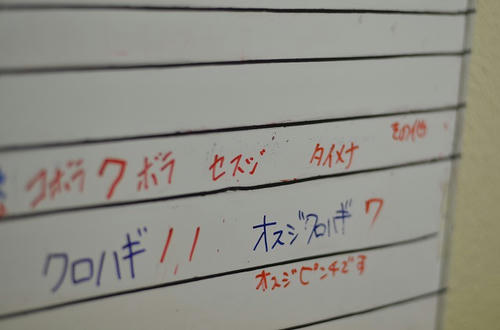 コボラ 7 ボラ セスジ タイメナ その他
クロハギ 1.1 オスジクロハギ 7
オスジピンチです